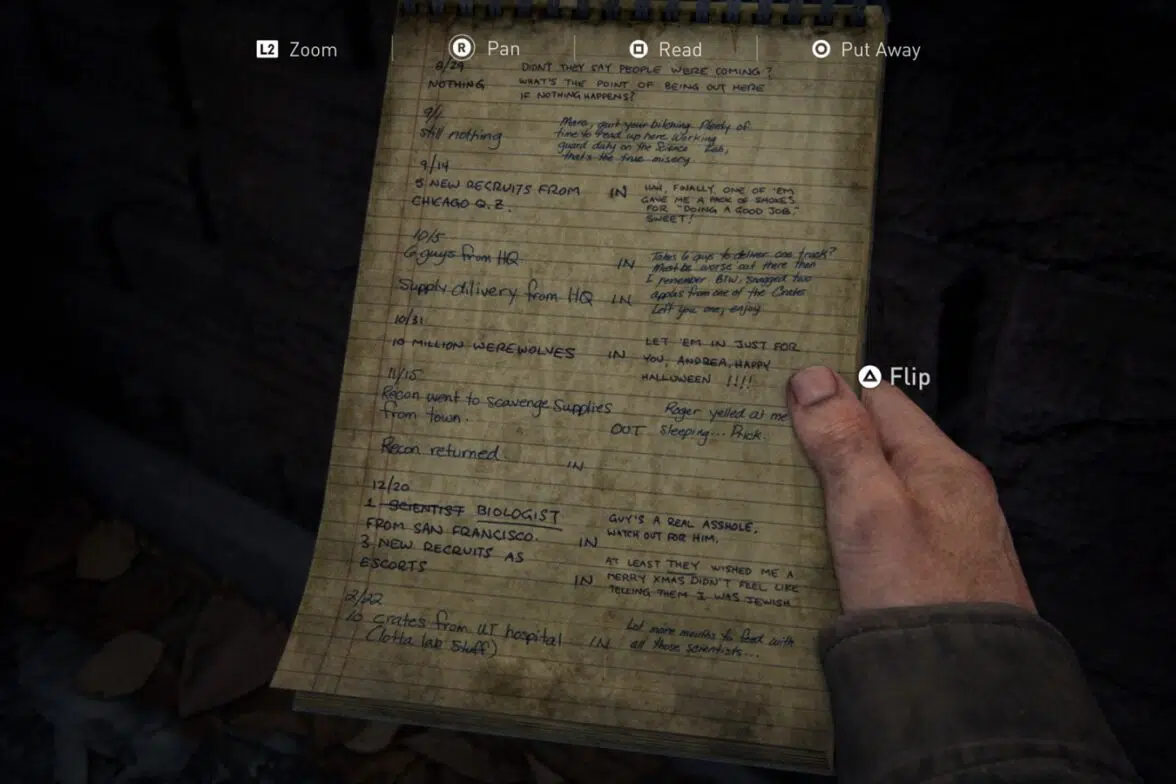 L2 Zoom
R Pan
Read
Put Away
8/29 DIDN'T THEY SAY PEOPLE WERE COMING?
NOTHING WHAT'S THE POINT OF BEING OUT HERE
IF NOTHING HAPPENS?
9/1
still nothing
Marc, quit your bitching. Plenty of
time to read up here. Working
guard duty on the Science Lab,
that's the true misery
9/14
5 NEW RECRUITS FROM IN
CHICAGO Q.Z.
HAH, FINALLY, ONE OF 'EM
GAVE ME A PACK OF SMOKES
FOR "DOING A GOOD JOB."
SWEET!
10/5
6 guys from HQ IN
Supply dilivery from HQ IN
Takes 6 guys to deliver one truck?
Must be worse out there than
I remember. BTW, snagged two
apples from one of the Crates
Left you one, enjoy
10/31
10 MILLION WEREWOLVES IN
LET 'EM IN JUST FOR
YOU, ANDREA, HAPPY
HALLOWEEN !!!!
Flip
11/15
Recon went to scavenge supplies
from town. OUT
Roger yelled at me
sleeping... Prick.
Recon returned. IN
12/20
1 SCIENTIST BIOLOGIST
FROM SAN FRANCISCO. IN
GUY'S A REAL ASSHOLE,
WATCH OUT FOR HIM.
3 NEW RECRUITS AS
ESCORTS IN
AT LEAST THEY WISHED ME A
MERRY XMAS DIDN'T FEEL LIKE
TELLING THEM I WAS JEWISH
2/22
10 crates from UT hospital IN
(lotta lab stuff)
Lot more mouths to feed with
all those scientists...